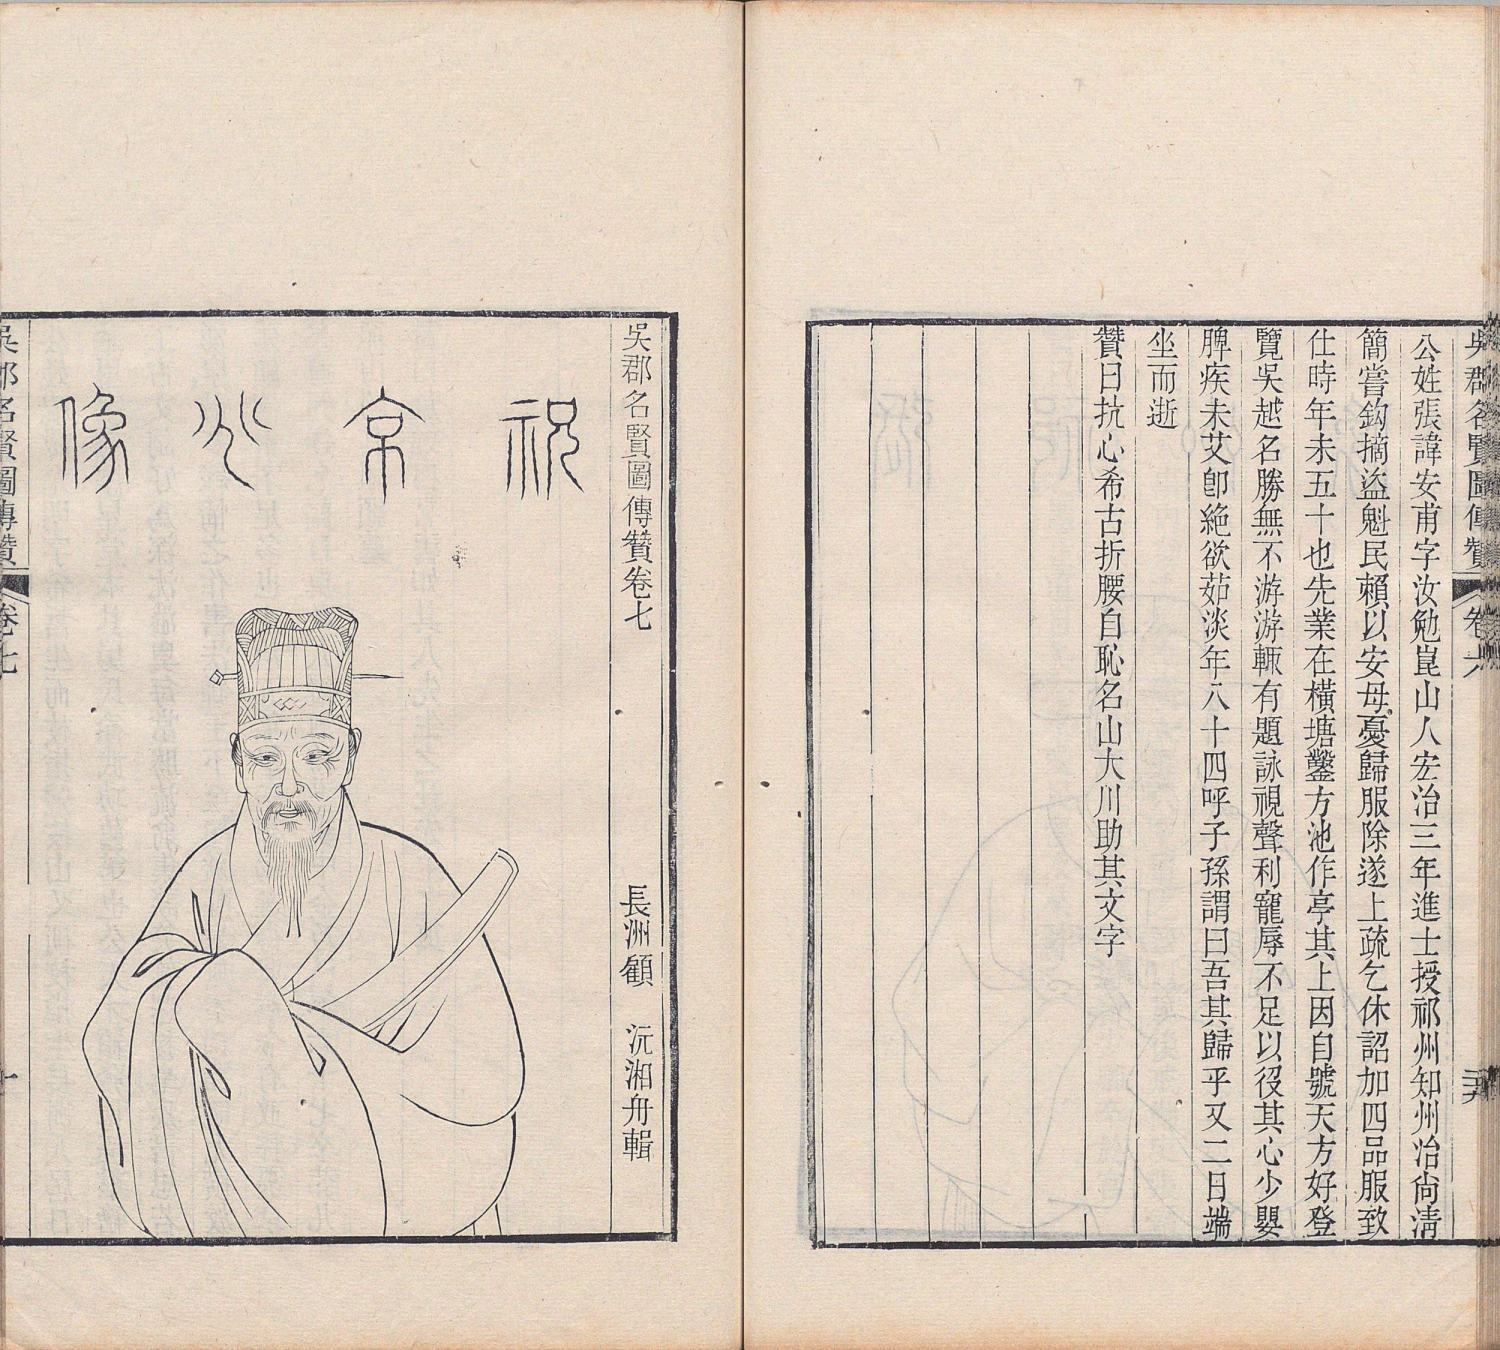 吳郡名賢圖傳贊
卷六
三十六
公姓張諱安甫字汝勉崑山人宏治三年進士授祁州知州治尚淸
簡嘗鈎摘盜魁民賴以安母憂歸服除遂上疏乞休詔加四品服致
仕時年未五十也先業在橫塘鑿方池作亭其上因自號天方好登
覽吳越名勝無不游游輒有題詠視聲利寵辱不足以役其心少嬰
脾疾未艾卽絶欲茹淡年八十四呼子孫謂曰吾其歸乎又二日端
坐而逝
贊曰抗心希古折腰自恥名山大川助其文字
吳郡名賢圖傳贊卷七
長洲顧沅湘舟輯
祝京兆像
吳郡名賢圖傳贊
卷七
一